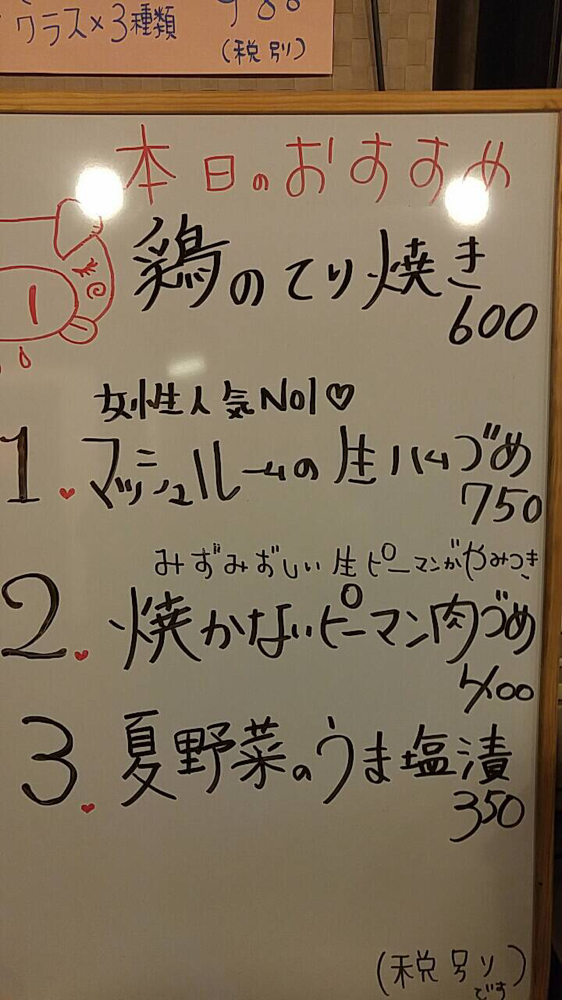 グラス×3種類 980
(税別)
本日のおすすめ
鶏のてり焼き
600
女性人気No1♡
1. マッシュルームの生ハムづめ
750
みずみずしい生ピーマンがやみつき
2. 焼かないピーマン肉づめ
400
3. 夏野菜のうま塩漬
350
(税別り)
です